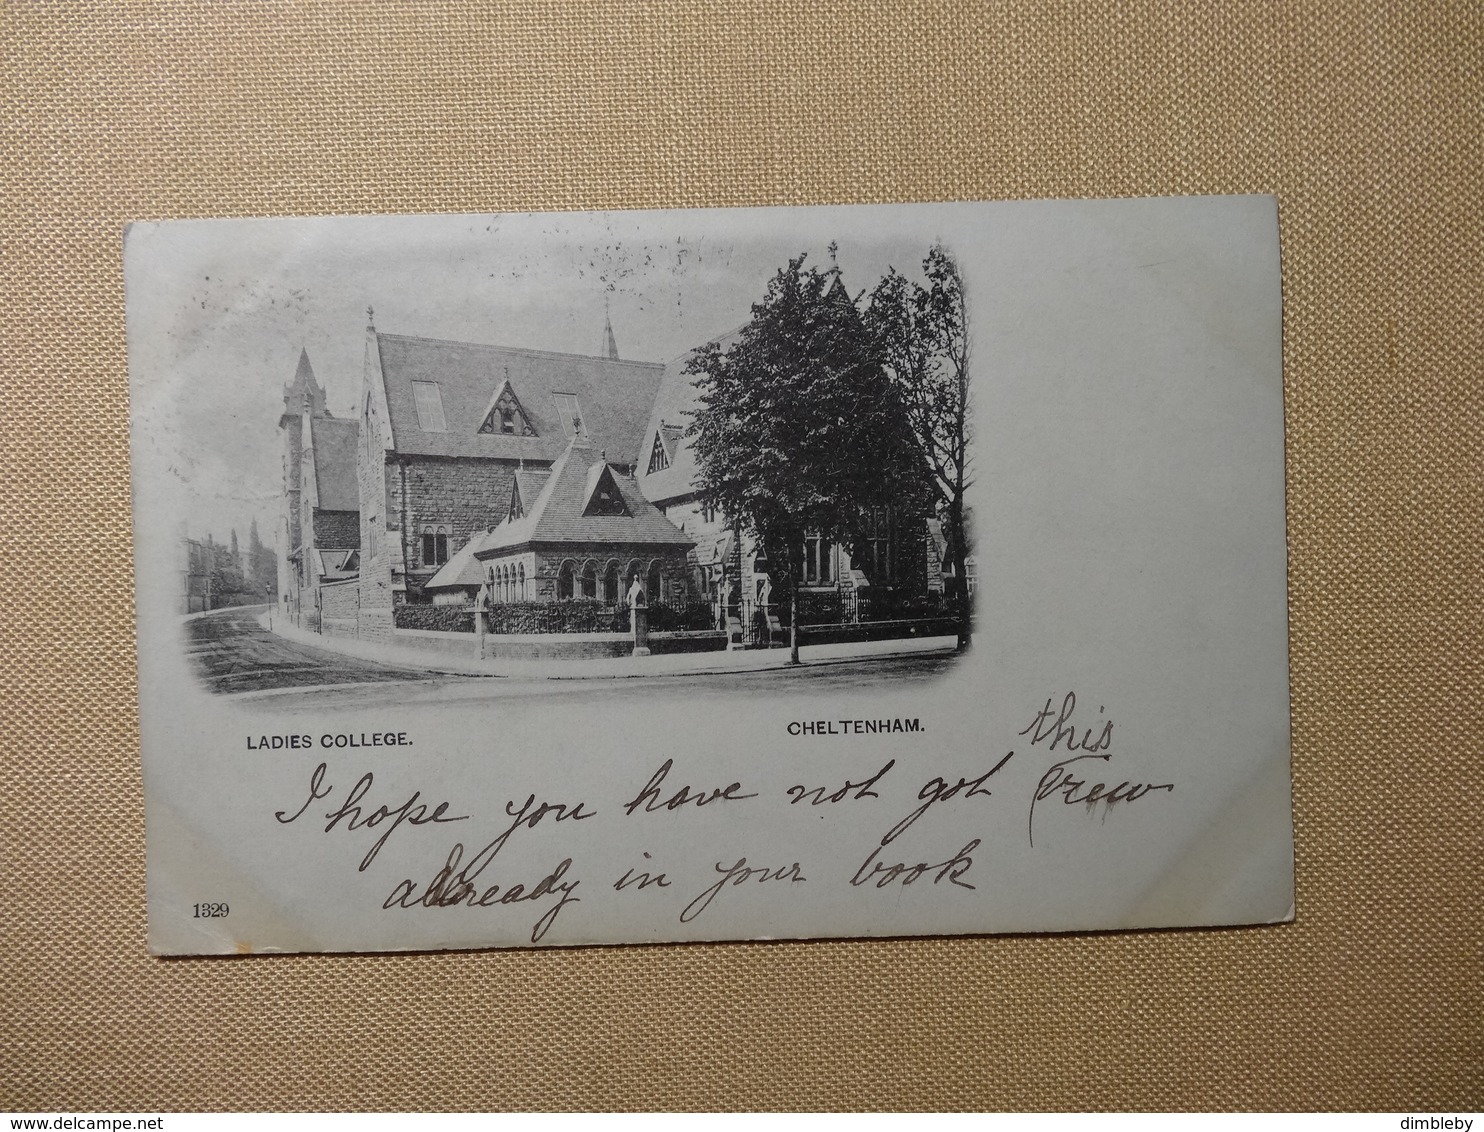 LADIES COLLEGE.
CHELTENHAM.
this
I hope you have not got view
already in your book
1329
delcampe.net
dimbleby